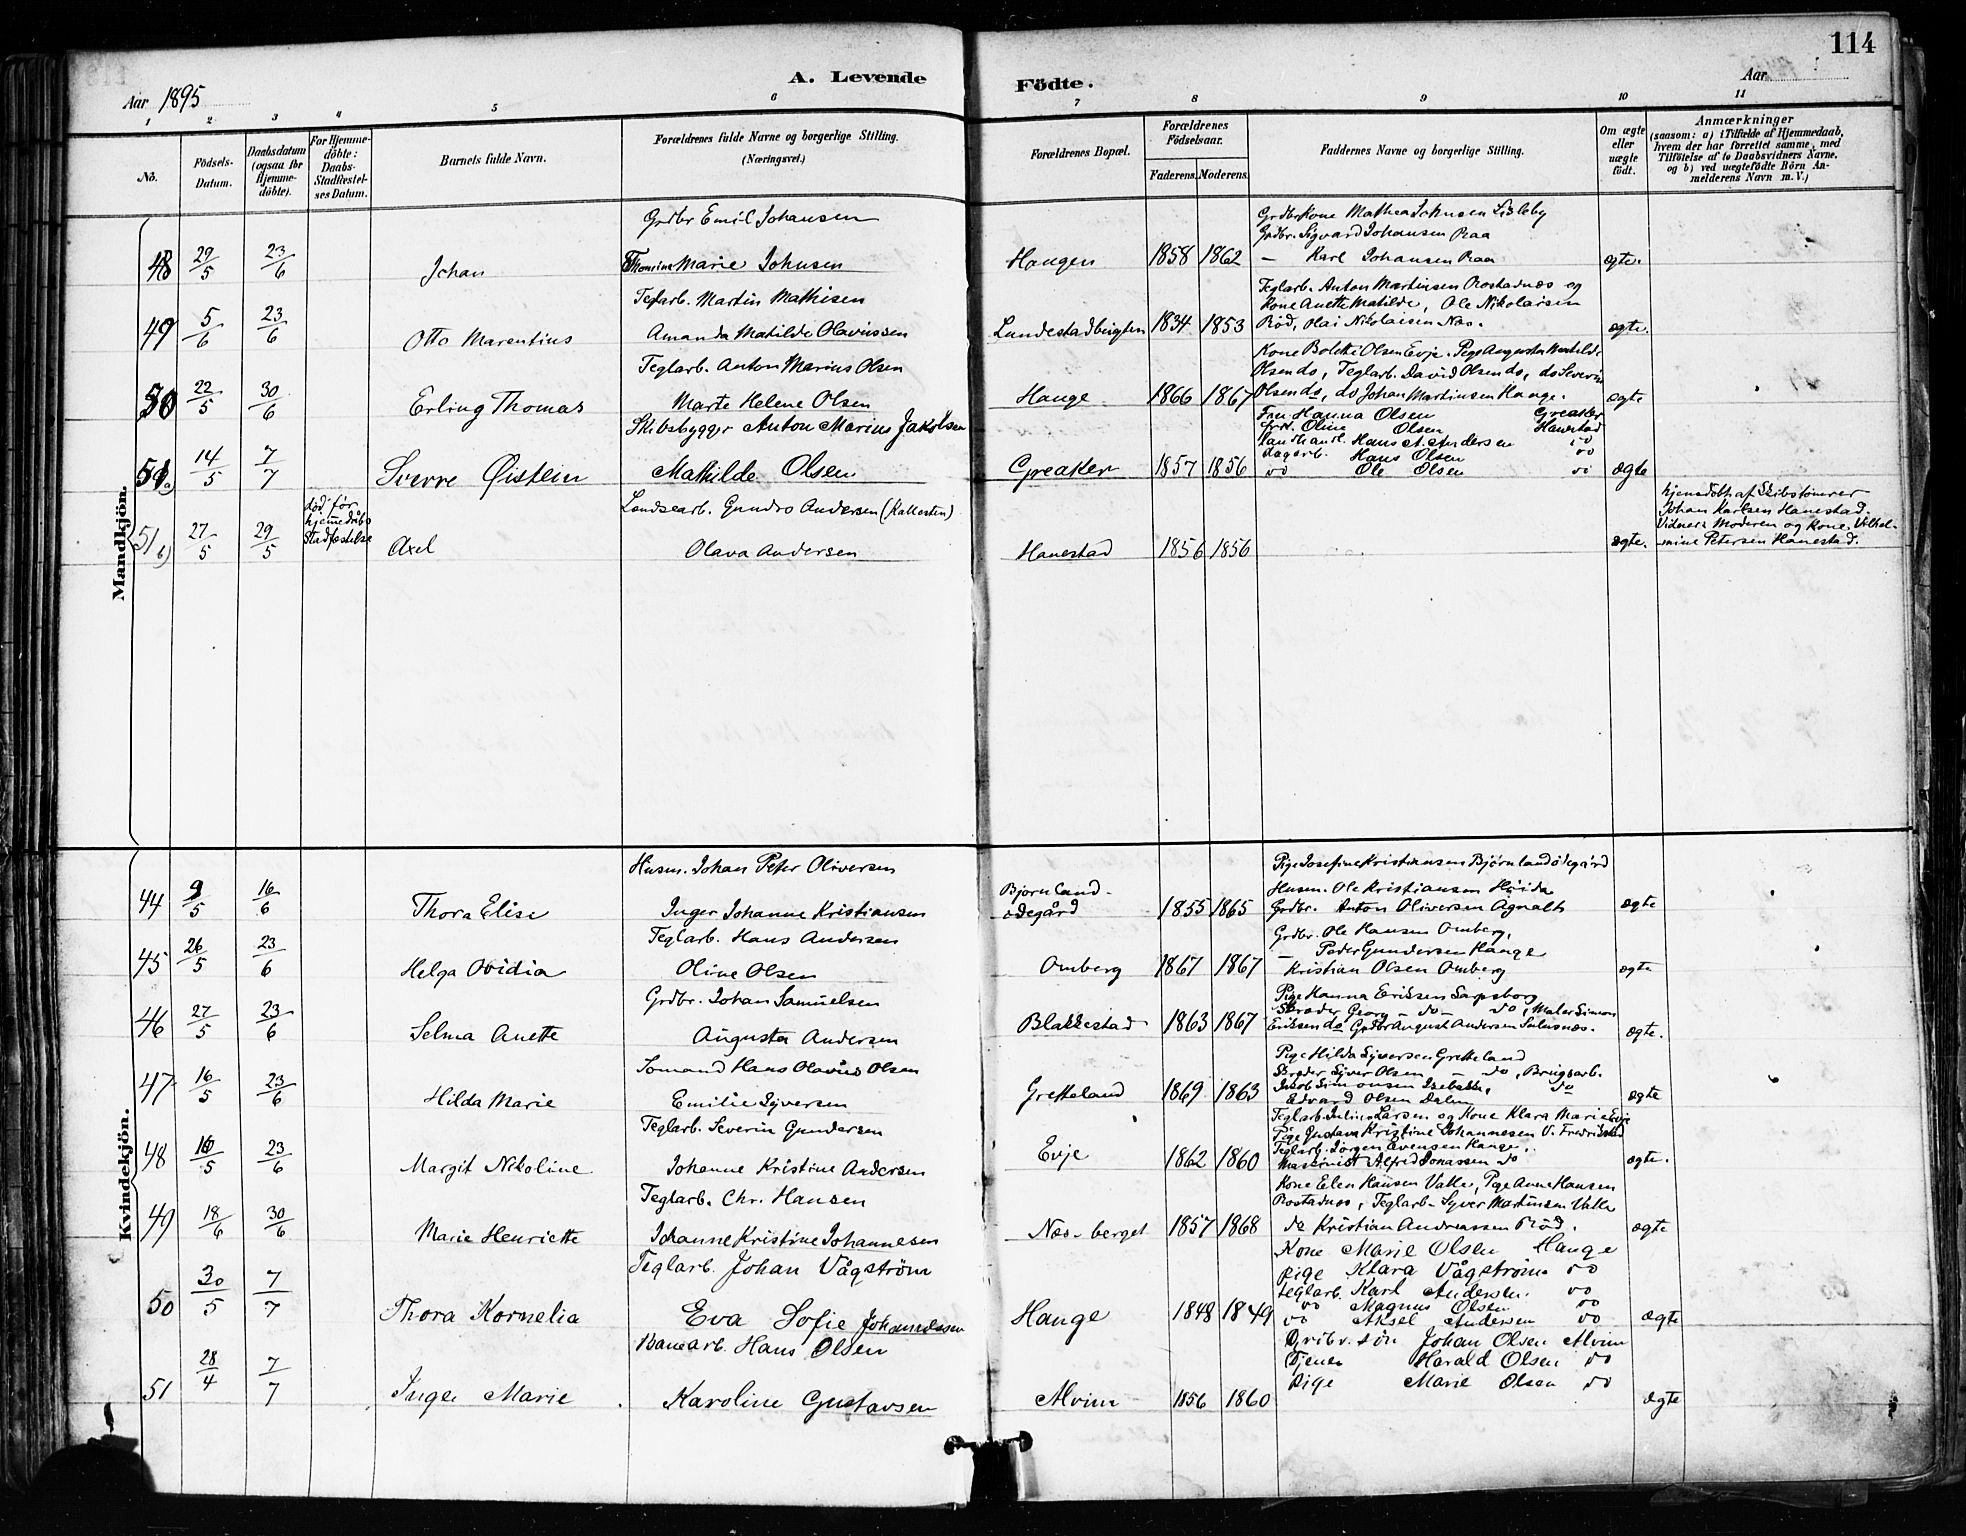 114
A. Levende Födte.
Aar 1895
Aar
1 2 3 4 5 6 7 8 9 10 11
No.
Födsels-Datum.
Daabsdatum (ogsaa for Hjemmedöbte).
For Hjemmedöbte: Daabs-Stadfæstelses Datum.
Barnets fulde Navn.
Forældrenes fulde Navne og borgerlige Stilling. (Næringsvei.)
Forældrenes Bopæl.
Forældrenes Födselsaar.
Faderens. Moderens.
Faddernes Navne og borgerlige Stilling.
Om ægte eller uægte födt.
Anmærkninger
(saasom: a) i Tilfælde af Hjemmedaab, hvem der har forrettet samme, med Tilföielse af to Daabsvidners Navne, og b) ved uægtefödte Börn Anmelderens Navn m. V.)
Mandkjön.
Grdbr Emil Johansen
Grdbr Kone Mathea Johnsen Lisleby
Grdbr. Sigvard Johansen Raa
48 29/5 23/6 Johan Thomine Marie Johnsen Haugen 1858 1862 — Karl Johansen Raa ægte.
Teglarb. Martin Mathisen
Teglarb. Anton Martinsen Rostadnæs og
Kone Anette Matilde, Ole Nikolaisen
49 5/6 23/6 Otto Marentius Amanda Matilde Olavussen Lundestadbrigten 1834 1853 Röd, Olai Nikolaisen Næs. ægte.
Teglarb. Anton Marius Olsen
Kone Bolette Olsen Evje. Pige Augusta Mathilde
Olsen do, Teglarb. David Olsen do, do Severin
50 22/5 30/6 Erling Thomas Marte Helene Olsen Hauge 1866 1867 Olsen do, do Johan Martinsen Hauge. ægte
Skibsbygger Anton Marius Jakobsen
Fru Hanna Olsen Greaker
Frk. Oline Olsen Hanestad
Landhandl. Hans A. Andersen do
Dagarb. Hans Olsen do
51 a) 14/5 7/7 Sverre Øistein Mathilde Olsen Greaker 1857 1856 do Ole Olsen do ægte
Landsearb. Gundro Andersen (Kallesten)
död før hjemmedåbs Stadfæstelse
hjemedöbt af Skibstömrer
Johan Karlsen Hanestad.
Vidner: Moderen og Kone Vilhel-
51 b) 27/5 29/5 Axel Olava Andersen Hanestad 1856 1856 ægte. mine Petersen Hanestad.
Kvindekjön.
Husm. Johan Peter Oliversen
Pige Josefine Kristiansen Björnlandödegård
Husm. Ole Kristiansen Höida
44 9/5 16/6 Thora Elise Inger Johanne Kristiansen Björnland-ödegård 1855 1865 Grdbr. Anton Oliversen Agnalt ægte
Teglarb. Hans Andersen
Grdbr. Ole Hansen Omberg,
— Peder Gundersen Hauge
45 26/5 23/6 Helga Ovidia Oline Olsen Omberg 1867 1867 Kristian Olsen Omberg ægte
Grdbr. Johan Samuelsen
Pige Hanna Eriksen Sarpsborg
Skræder Georg — do — do, Maler Simon
46 27/5 23/6 Selma Anette Augusta Andersen Blakkestad 1863 1867 Eriksen do Grdbr August Andersen ægte.
Sömand Hans Olavus Olsen
Pige Hilda Syversen Gretteland
Skræder Syver Olsen — do, Brugsarb.
Jacob Simonsen Isebakke, do
47 16/5 23/6 Hilda Marie Emilie Syversen Gretteland 1869 1863 Edvard Olsen Dalen ægte
Teglarb. Severin Gundersen
Teglarb. Julius Larsen og Kone Klara Marie Evje
Pige Gustava Kristine Johannesen V. Fredrikstad
Teglarb. Jörgen Evensen Hauge,
48 10/5 23/6 Margit Nikoline Johanne Kristine Andersen Evje 1862 1860 Maskinist Alfred Jonassen do ægte.
Teglarb. Chr. Hansen
Kone Elen Hansen Valle, Pige Anne Hansen
Rostadnæs, Teglarb. Syver Martinsen Valle
49 18/6 30/6 Marie Henriette Johanne Kristine Johannesen Næs-berget 1857 1868 do Kristian Andreassen Röd. ægte
Teglarb. Johan Vågström
Kone Marie Olsen Hauge
Pige Klara Vågström do
Teglarb. Karl Andersen do
do Magnus Olsen do
50 30/5 7/7 Thora Kornelia Eva Sofie Johannessen Hauge 1848 1849 do Aksel Andersen do ægte
Banearb. Hans Olsen
Grdbr. sön Johan Olsen Alvim
Tjener Harald Olsen do
Pige Marie Olsen do
51 28/4 7/7 Inga Marie Karoline Gustavsen Alvim 1856 1860 ægte